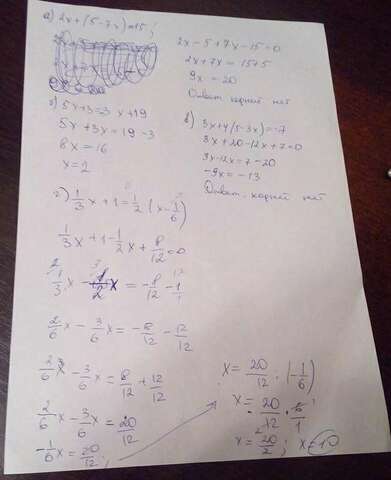 а) 2x+(5-7x)=15;
2x-5+7x-15=0
2x+7x=15+5
9x=20
Ответ корней нет
б) 5x+3=3x+19
5x+3x=19-3
8x=16
x=2
в) 3x+4(5-3x)=-7
3x+20-12x+7=0
3x-12x=7-20
-9x=-13
Ответ. корней нет
г) 1/3x+1=1/2(x-1/6)
1/3x+1-1/2x+8/12=0
1/3x-1/2x=-8/12-1/1
2/6x-3/6x=-8/12-12/12
2/6x-3/6x=8/12+12/12
2/6x-3/6x=20/12
-1/6x=20/12;
x=20/12:(-1/6)
x=20/12·6/1
x=20/2; x=10